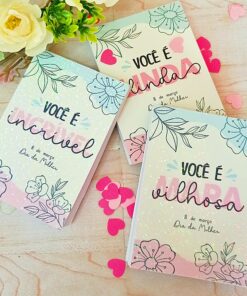 VOCÊ É
LINDA
linda
8 de março
Dia da Mulher
VOCÊ É
INCRÍVEL
incrível
8 de março
Dia da Mulher
VOCÊ É
MARA
vilhosa
8 de março
Dia da Mulher